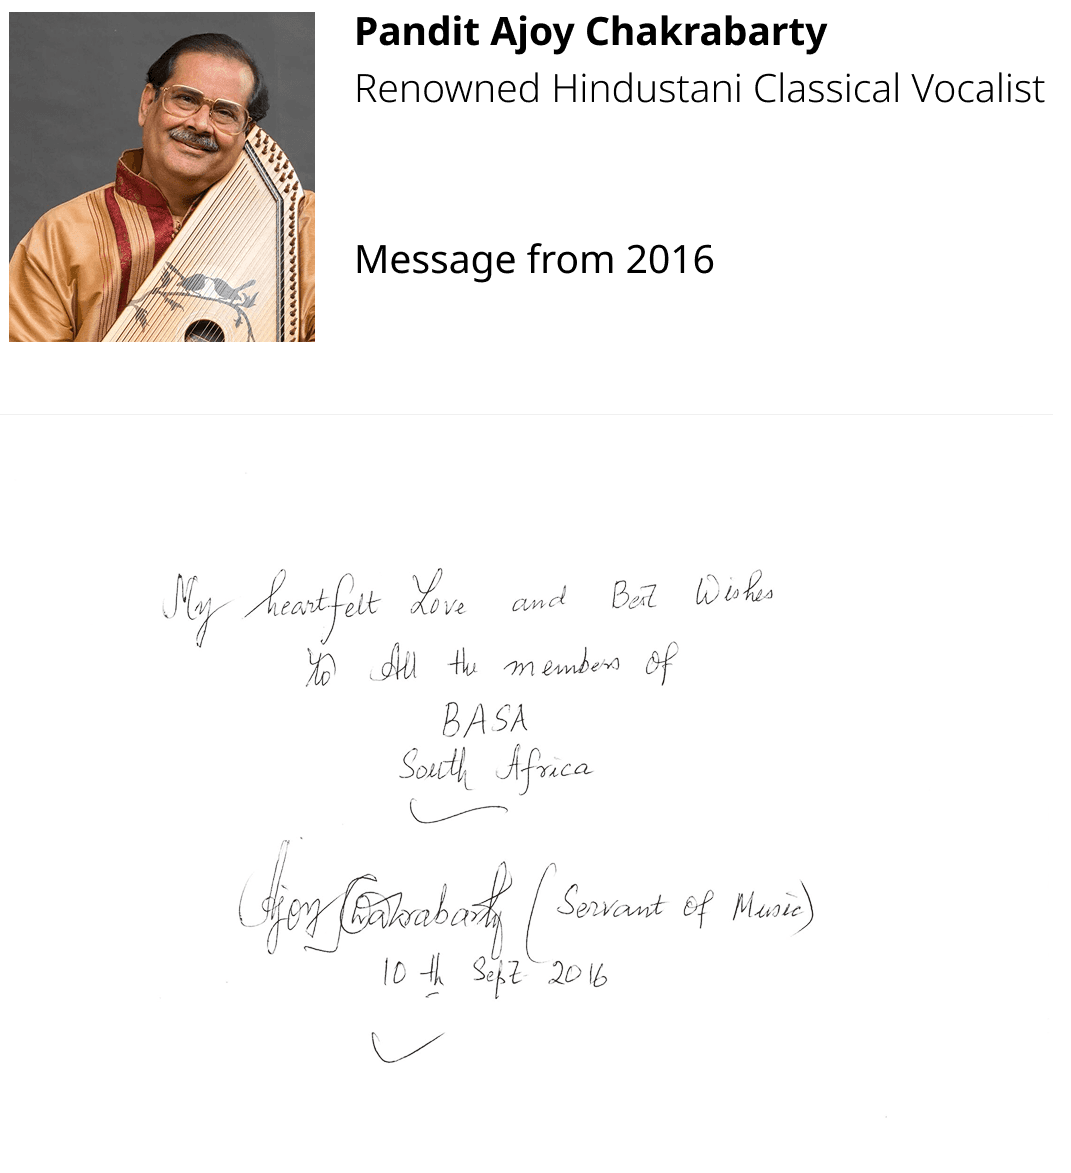 Pandit Ajoy Chakrabarty
Renowned Hindustani Classical Vocalist
Message from 2016
My heartfelt Love and Best Wishes
To All the members of
BASA
South Africa
Ajoy Chakrabarty (Servant of Music)
10th Sept 2016